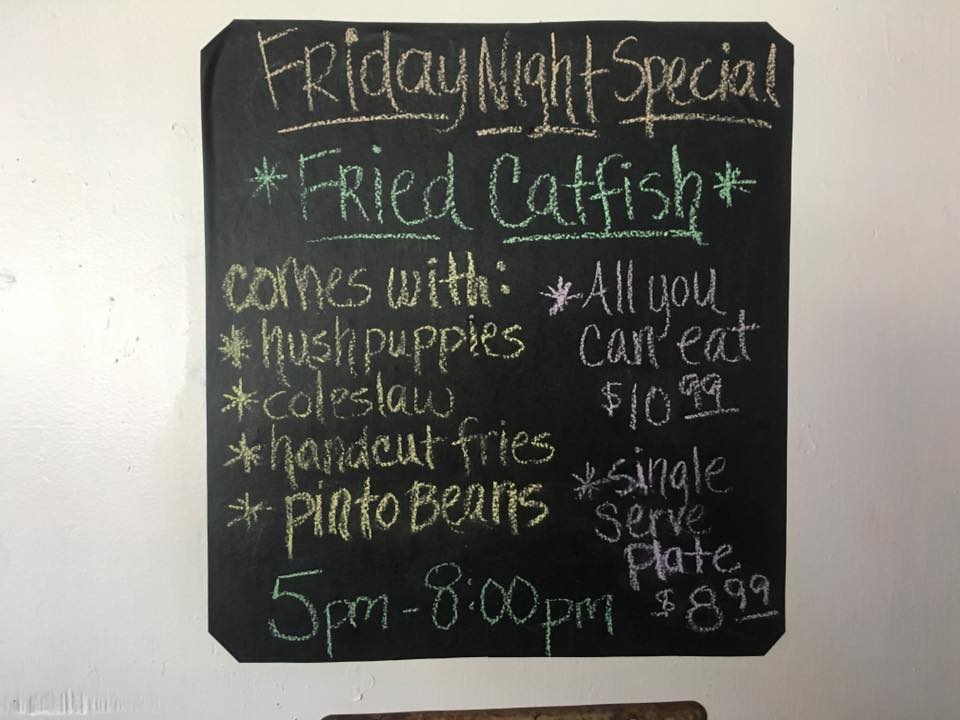 FRiday Night Special
* FRied Catfish *
comes with:
* hushpuppies
* coleslaw
* handcut fries
* pinto Beans
* All you
can eat
$10.99
* single
serve
plate
$8.99
5pm - 8:00pm